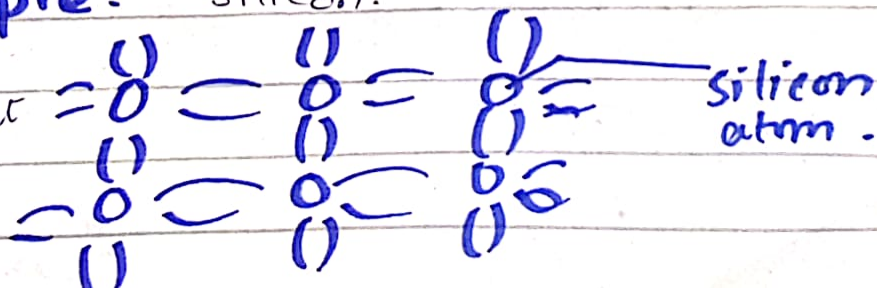 silicon.
silicon
atom.